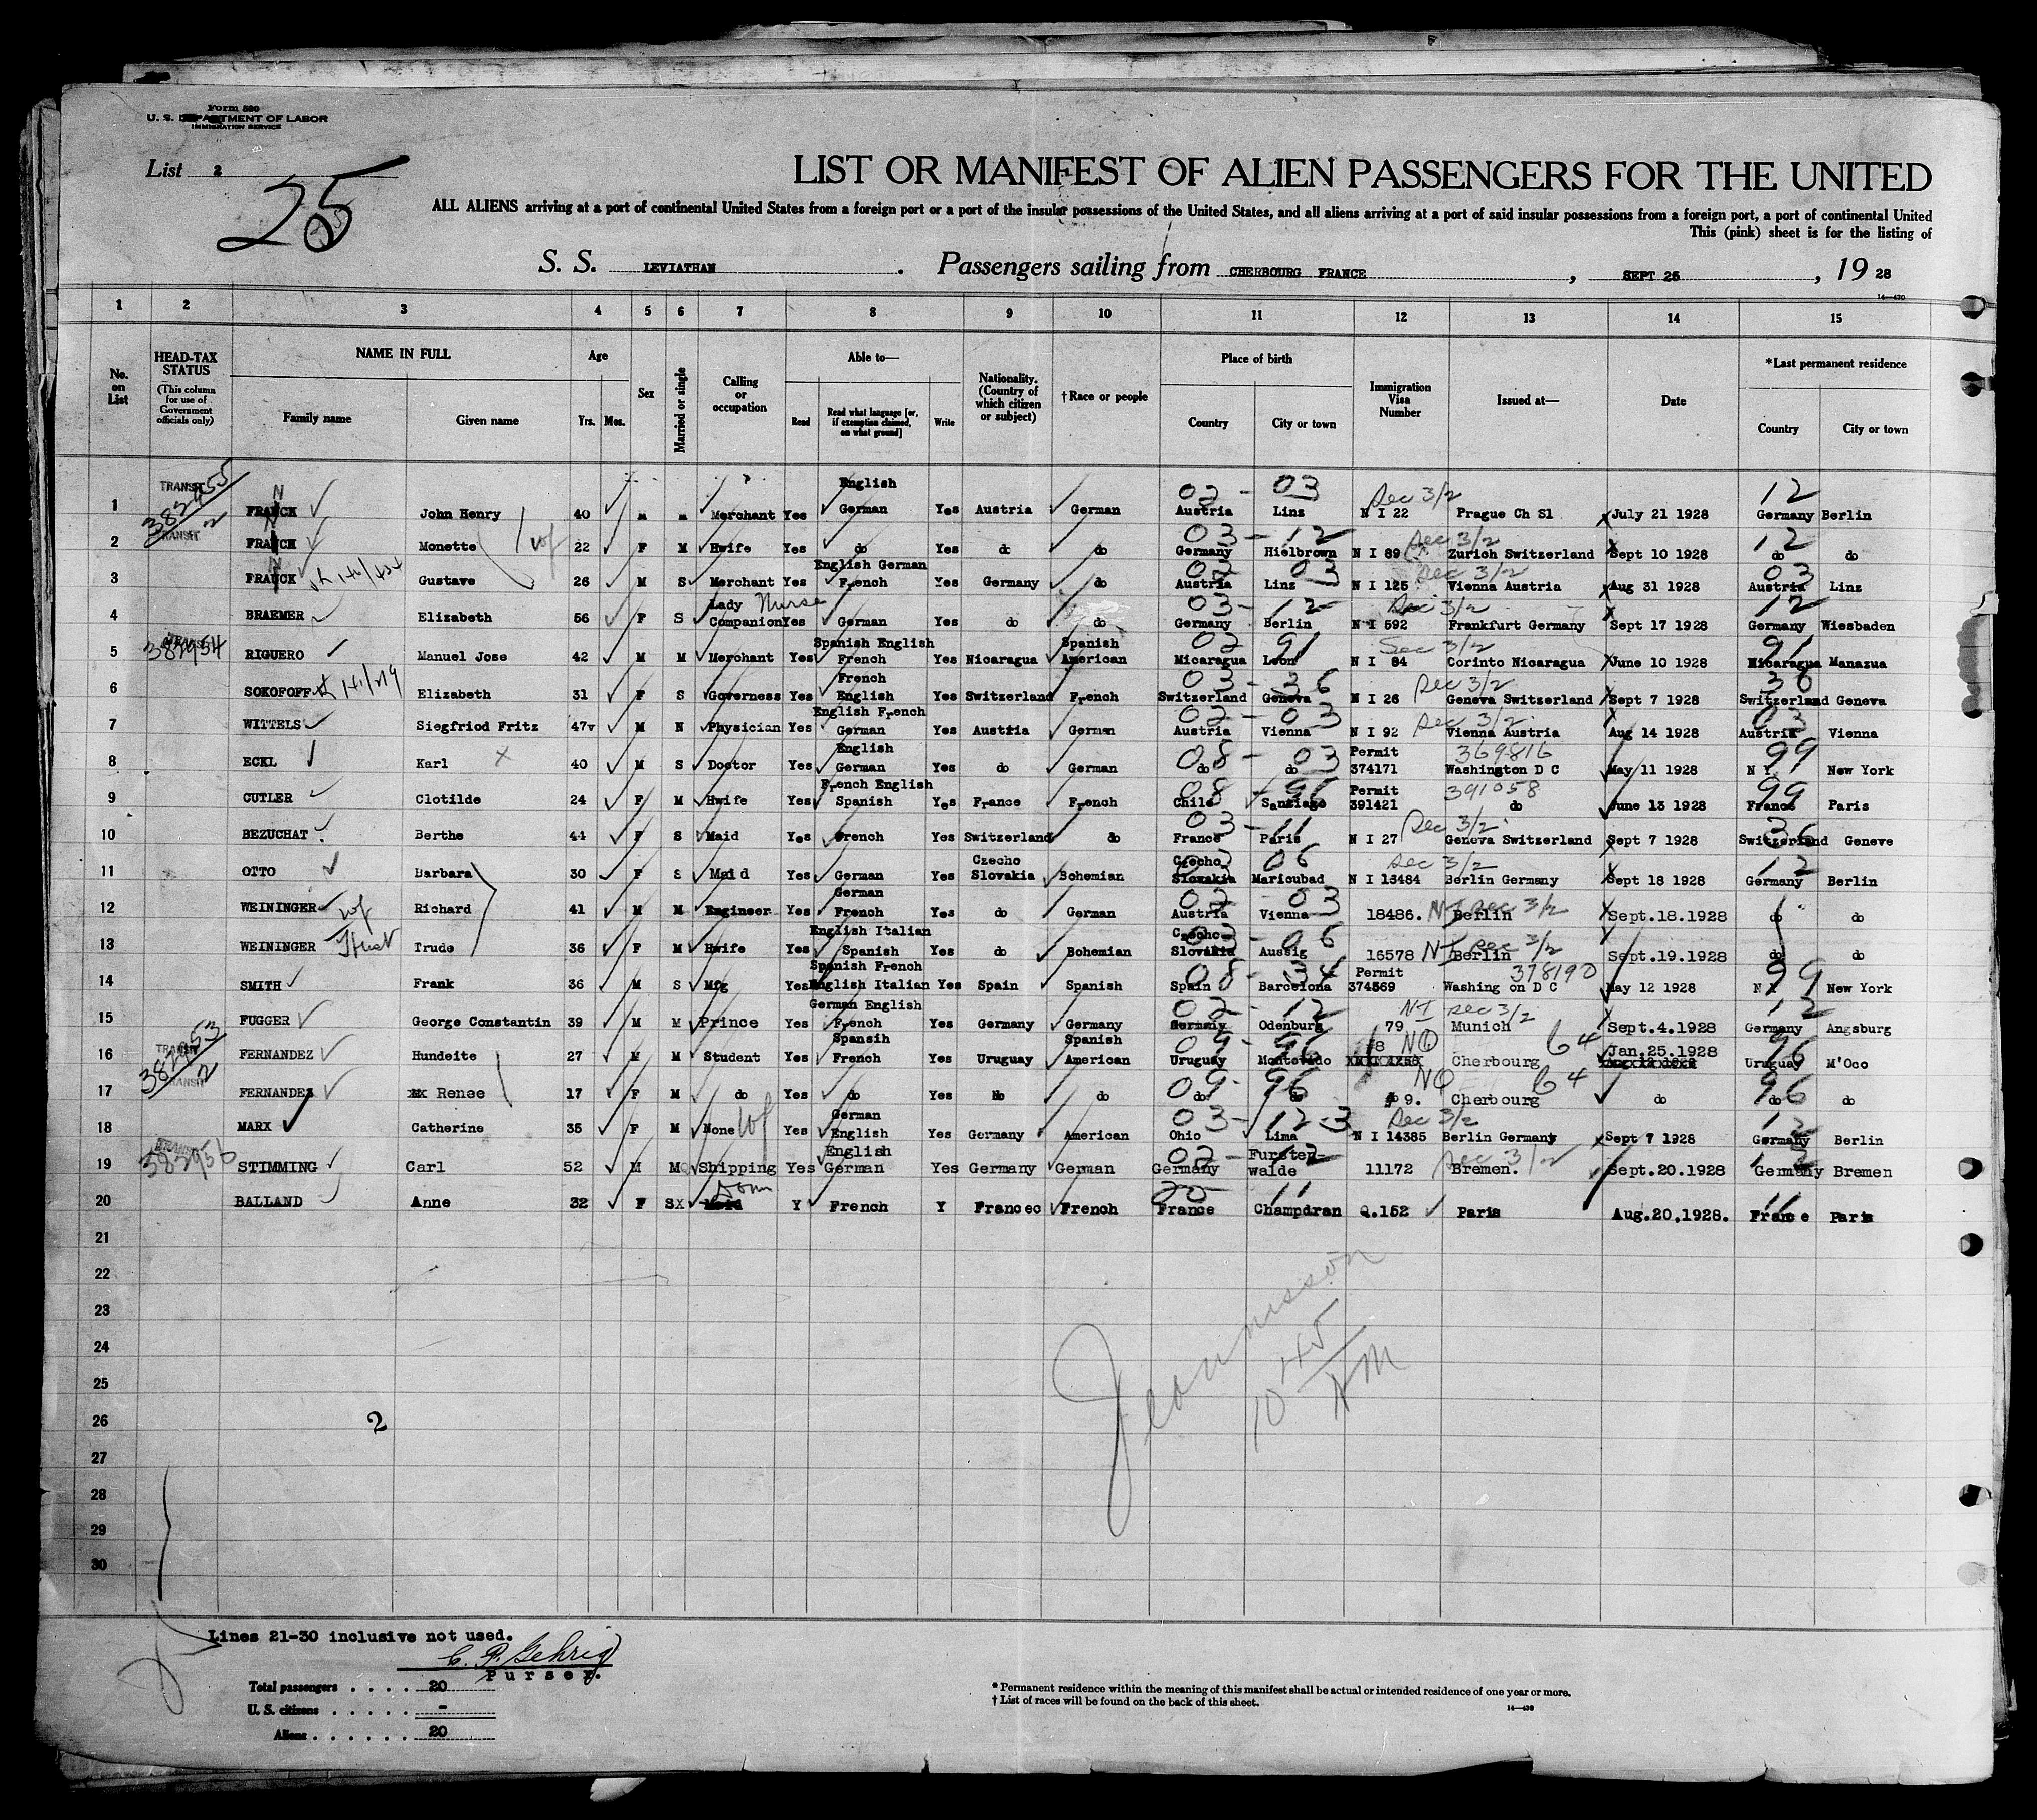 Form 500
U. S. DEPARTMENT OF LABOR
IMMIGRATION SERVICE
List 2
25
LIST OR MANIFEST OF ALIEN PASSENGERS FOR THE UNITED
ALL ALIENS arriving at a port of continental United States from a foreign port or a port of the insular possessions of the United States, and all aliens arriving at a port of said insular possessions from a foreign port, a port of continental United
This (pink) sheet is for the listing of
S. S. LEVIATHAN. Passengers sailing from CHERBOURG FRANCE, SEPT 25, 19 28
14—430
1 2 3 4 5 6 7 8 9 10 11 12 13 14 15
No. on List
HEAD-TAX STATUS (This column for use of Government officials only)
NAME IN FULL Family name Given name
Age Yrs. Mos.
Sex
Married or single
Calling or occupation
Able to— Read Read what language [or, if exemption claimed, on what ground] Write
Nationality. (Country of which citizen or subject)
† Race or people
Place of birth Country City or town
Immigration Visa Number
Issued at—
Date
*Last permanent residence Country City or town
1 TRANSIT 382955 FRANCK N John Henry 40 M M Merchant Yes English German Yes Austria German 02 - 03 Austria Linz Sec 3/2 N I 22 Prague Ch Sl July 21 1928 12 Germany Berlin
2 TRANSIT 2 FRANCK N Monette wf 22 F M Hwife Yes do Yes do do 03 - 12 Germany Hielbrown Sec 3/2 N I 89 Zurich Switzerland Sept 10 1928 12 do do
3 FRANCK N Gustave 26 M S Merchant Yes English German French Yes Germany do 02 03 Austria Linz Sec 3/2 N I 125 Vienna Austria Aug 31 1928 03 Austria Linz
4 BRAEMER Elizabeth 56 F S Lady Companion Nurse Yes German Yes do do 03- 12 Germany Berlin Sec 3/2 N I 592 Frankfurt Germany Sept 17 1928 12 Germany Wiesbaden
5 TRANSIT 382954 RIGUERO Manuel Jose 42 M M Merchant Yes Spanish English French Yes Nicaragua Spanish American 02 91 Micaragua Leon Sec 3/2 N I 84 Corinto Nicaragua June 10 1928 91 Nicaragua Manazua
6 SOKOFOFF 141/279 Elizabeth 31 F S Governess Yes French English Yes Switzerland French 03 - 36 Switzerland Geneva Sec 3/2 N I 26 Geneva Switzerland Sept 7 1928 36 Switzerland Geneva
7 WITTELS Siegfriod Fritz 47v M N Physician Yes English French German Yes Austria German 02 - 03 Austria Vienna Sec 3/2 N I 92 Vienna Austria Aug 14 1928 03 Austria Vienna
8 ECKL Karl X 40 M S Doctor Yes English German Yes do German 08 - 03 do do Permit 374171 369816 Washington D C May 11 1928 99 N Y New York
9 CUTLER Clotilde 24 F M Hwife Yes French English Spanish Yes France French 08 - 96 Chile Santiago Permit 391421 391058 do June 13 1928 99 France Paris
10 BEZUCHAT Berthe 44 F S Maid Yes French Yes Switzerland do 03 - 11 France Paris Sec 3/2 N I 27 Geneva Switzerland Sept 7 1928 36 Switzerland Geneve
11 OTTO Barbara 30 F S Maid Yes German Yes Czecho Slovakia Bohemian Czecho Slovakia 06 Maricubad Sec 3/2 N I 13484 Berlin Germany Sept 18 1928 12 Germany Berlin
12 WEININGER wf Richard 41 M M Engineer Yes German French Yes do German 02 - 03 Austria Vienna 18486. NI Sec 3/2 Berlin Sept.18.1928 do do
13 WEININGER Hust Trude 36 F M Hwife Yes English Italian Spanish Yes do Bohemian Czecho- Slovakia 06 Aussig 16578 NI Sec 3/2 Berlin Sept.19.1928 do do
14 SMITH Frank 36 M S Mfg Yes Spanish French English Italian Yes Spain Spanish 08 - 34 Spain Barcelona Permit 374569 378190 Washing on D C May 12 1928 99 N Y New York
15 FUGGER George Constantin 39 M M Prince Yes German English French Yes Germany Germany 02 - 12 Germany Odenburg NI Sec 3/2 79 Munich Sept.4.1928 12 Germany Angsburg
16 TRANSIT 382953 FERNANDEZ Hundeite 27 M M Student Yes Spansih French Yes Uruguay Spanish American 09 - 96 Uruguay Montevido #8 NQ Cherbourg 64 Jan.25.1928 96 Uruguay M'Oco
17 TRANSIT 2 FERNANDEZ Renee 17 F M do Yes do Yes do do 09- 96 do do NQ # 9. Cherbourg 64 do 96 do do
18 MARX Catherine 35 F M None wf Yes German English Yes Germany American 03- 12-3 Ohio Lima Sec 3/2 N I 14385 Berlin Germany Sept 7 1928 12 Germany Berlin
19 TRANSIT 382956 STIMMING Carl 52 M M Shipping Yes English German Yes Germany German 02- 12 Germany Fursten- walde 11172 Sec 3/2 Bremen. Sept.20.1928 Germany Bremen
20 BALLAND Anne 32 F SX Maid Dom Y French Y Francec French 20 11 France Champdran Q.152 Paris Aug.20,1928. 11 France Paris
21
22
23
24
25
26 2
27
28
29
30
10 45 AM
Lines 21-30 inclusive not used.
C. P. Gehrig
Purser.
Total passengers . . . . 20
U. S. citizens . . . . . -
Aliens . . . . . . 20
* Permanent residence within the meaning of this manifest shall be actual or intended residence of one year or more.
† List of races will be found on the back of this sheet.
14—430